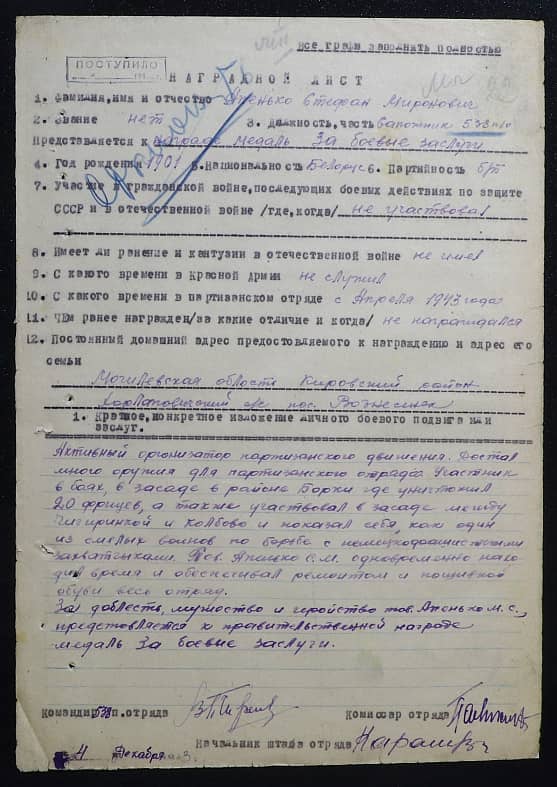 все графы заполнять полностью
ПОСТУПИЛО
НАГРАДНОЙ ЛИСТ
1. Фамилия, имя и отчество Апенько Стефан Миронович
2. Звание нет 3. Должность, часть сапожник 538 п/о
Представляется к награде медаль За боевые заслуги
4. Год рождения 1901 5. Национальность Белорус 6. Партийность б/п
7. Участие в гражданской войне, последующих боевых действиях по защите
СССР и в отечественной войне /где, когда/ не участвовал
8. Имеет ли ранение и кантузии в отечественной войне не имел
9. С какого времени в Красной Армии не служил
10. С какого времени в партизанском отряде с Апреля 1943 года
11. Чем ранее награжден/за какие отличие и когда/ не награждался
12. Постоянный домашний адрес предостовляемого к награждению и адрес его
семьи
Могилевская область Кировский район
с/с пос. Вознесенск
1. Краткое, конкретное изложение личного боевого подвига или
заслуг.
Активный организатор партизанского движения. Достал
много оружия для партизанского отряда. Участник
в боях, в засаде в районе Борки где уничтожил
20 фрицев, а также участвовал в засаде между
Чигиринкой и Колбово и показал себя, как один
из смелых воинов по борьбе с немецкофашистскими
захватчиками. Тов. Апенько С.М. одновременно нахо-
дил время и обеспечивал ремонтом и пошивкой
обуви весь отряд.
За доблесть, мужество и геройство тов. Апенько М.С.,
представляется к правительственной награде
медаль За боевые заслуги.
Командир 538 п. отряда Комиссар отряда
Начальник штаба отряда
4 Декабря 3.